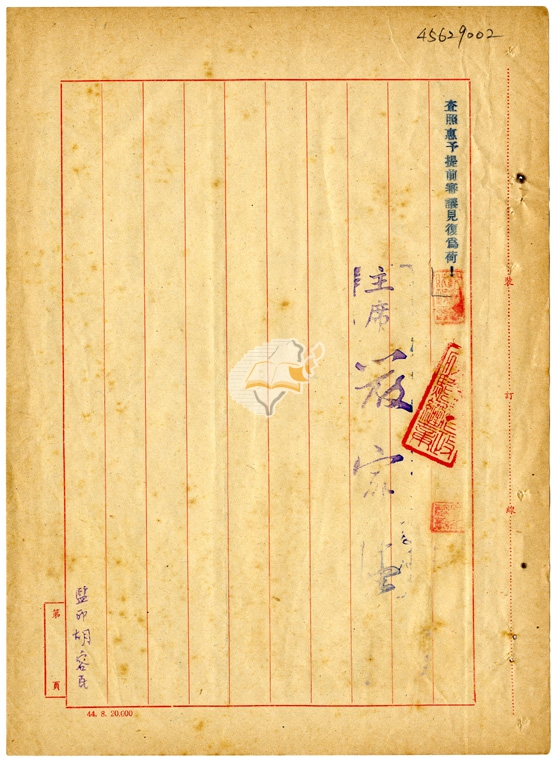 45629002
查照惠予提前審議見復為荷！
主席 嚴家淦
監印 胡容民
裝
訂
線
第
頁
44. 8. 20.000